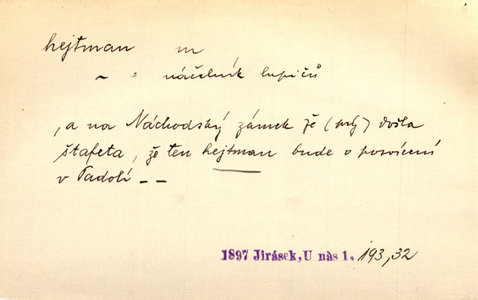 hejtman m
~ = náčelník lupičů
, a na Náchodský zámek že (prý) došla
štafeta, že ten hejtman bude o posvícení
v Padolí _ _
1897 Jirásek, U nàs 1. 193,32